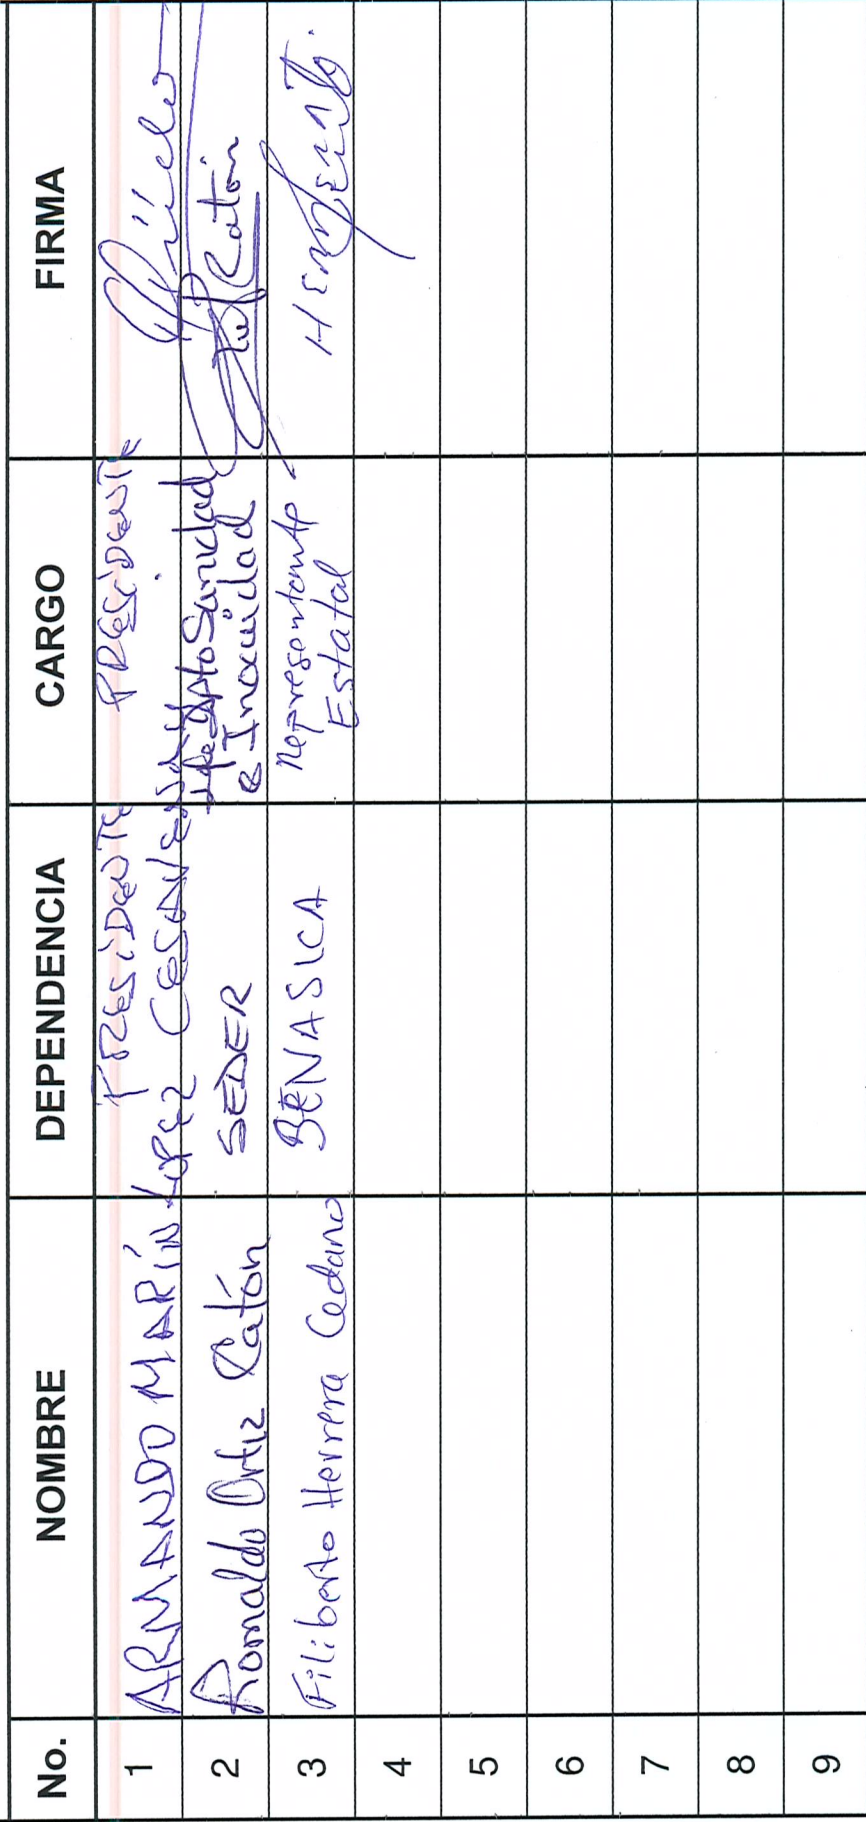 No. NOMBRE DEPENDENCIA CARGO FIRMA
1 ARMANDO MARÍN LOPEZ PRESIDENTE CESAVENAY PRESIDENTE
2 Romaldo Ortiz Catón SEDER Jefe Dpto Sanidad e Inocuidad Catón
3 Filiberto Herrera Cedano SENASICA Representante Estatal
4
5
6
7
8
9